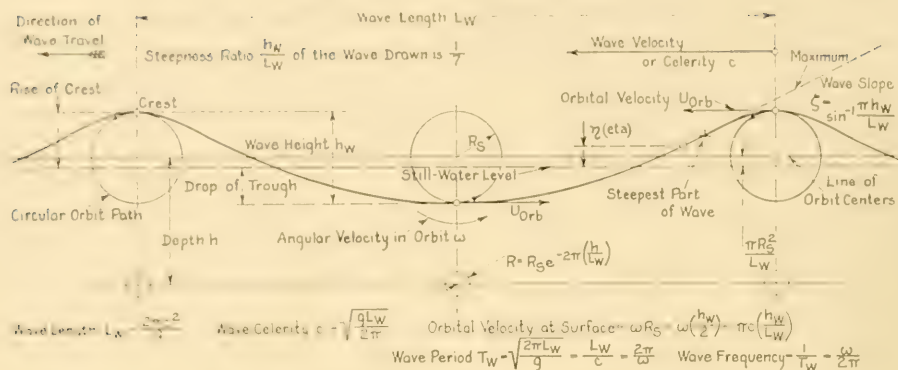 Direction of
Wave Travel
Wave Length L_W
Steepness Ratio h_W/L_W of the Wave Drawn is 1/7
Wave Velocity
or Celerity c
Maximum
Wave Slope
Rise of Crest
Crest
Orbital Velocity U_Orb
ζ = sin⁻¹ πh_W/L_W
η(eta)
Wave Height h_W
R_S
Still-Water Level
Drop of Trough
Steepest Part
of Wave
Line of
Orbit Centers
Circular Orbit Path
U_Orb
Angular Velocity in Orbit ω
Depth h
R = R_S e^-2π(h/L_W)
πR_S²/L_W
Wave Length L_W =
Wave Celerity c = √(gL_W/2π)
Orbital Velocity at Surface = ωR_S = ω(h_W/2) = πc(h_W/L_W)
Wave Period T_W = √(2πL_W/g) = L_W/c = 2π/ω
Wave Frequency = 1/T_W = ω/2π